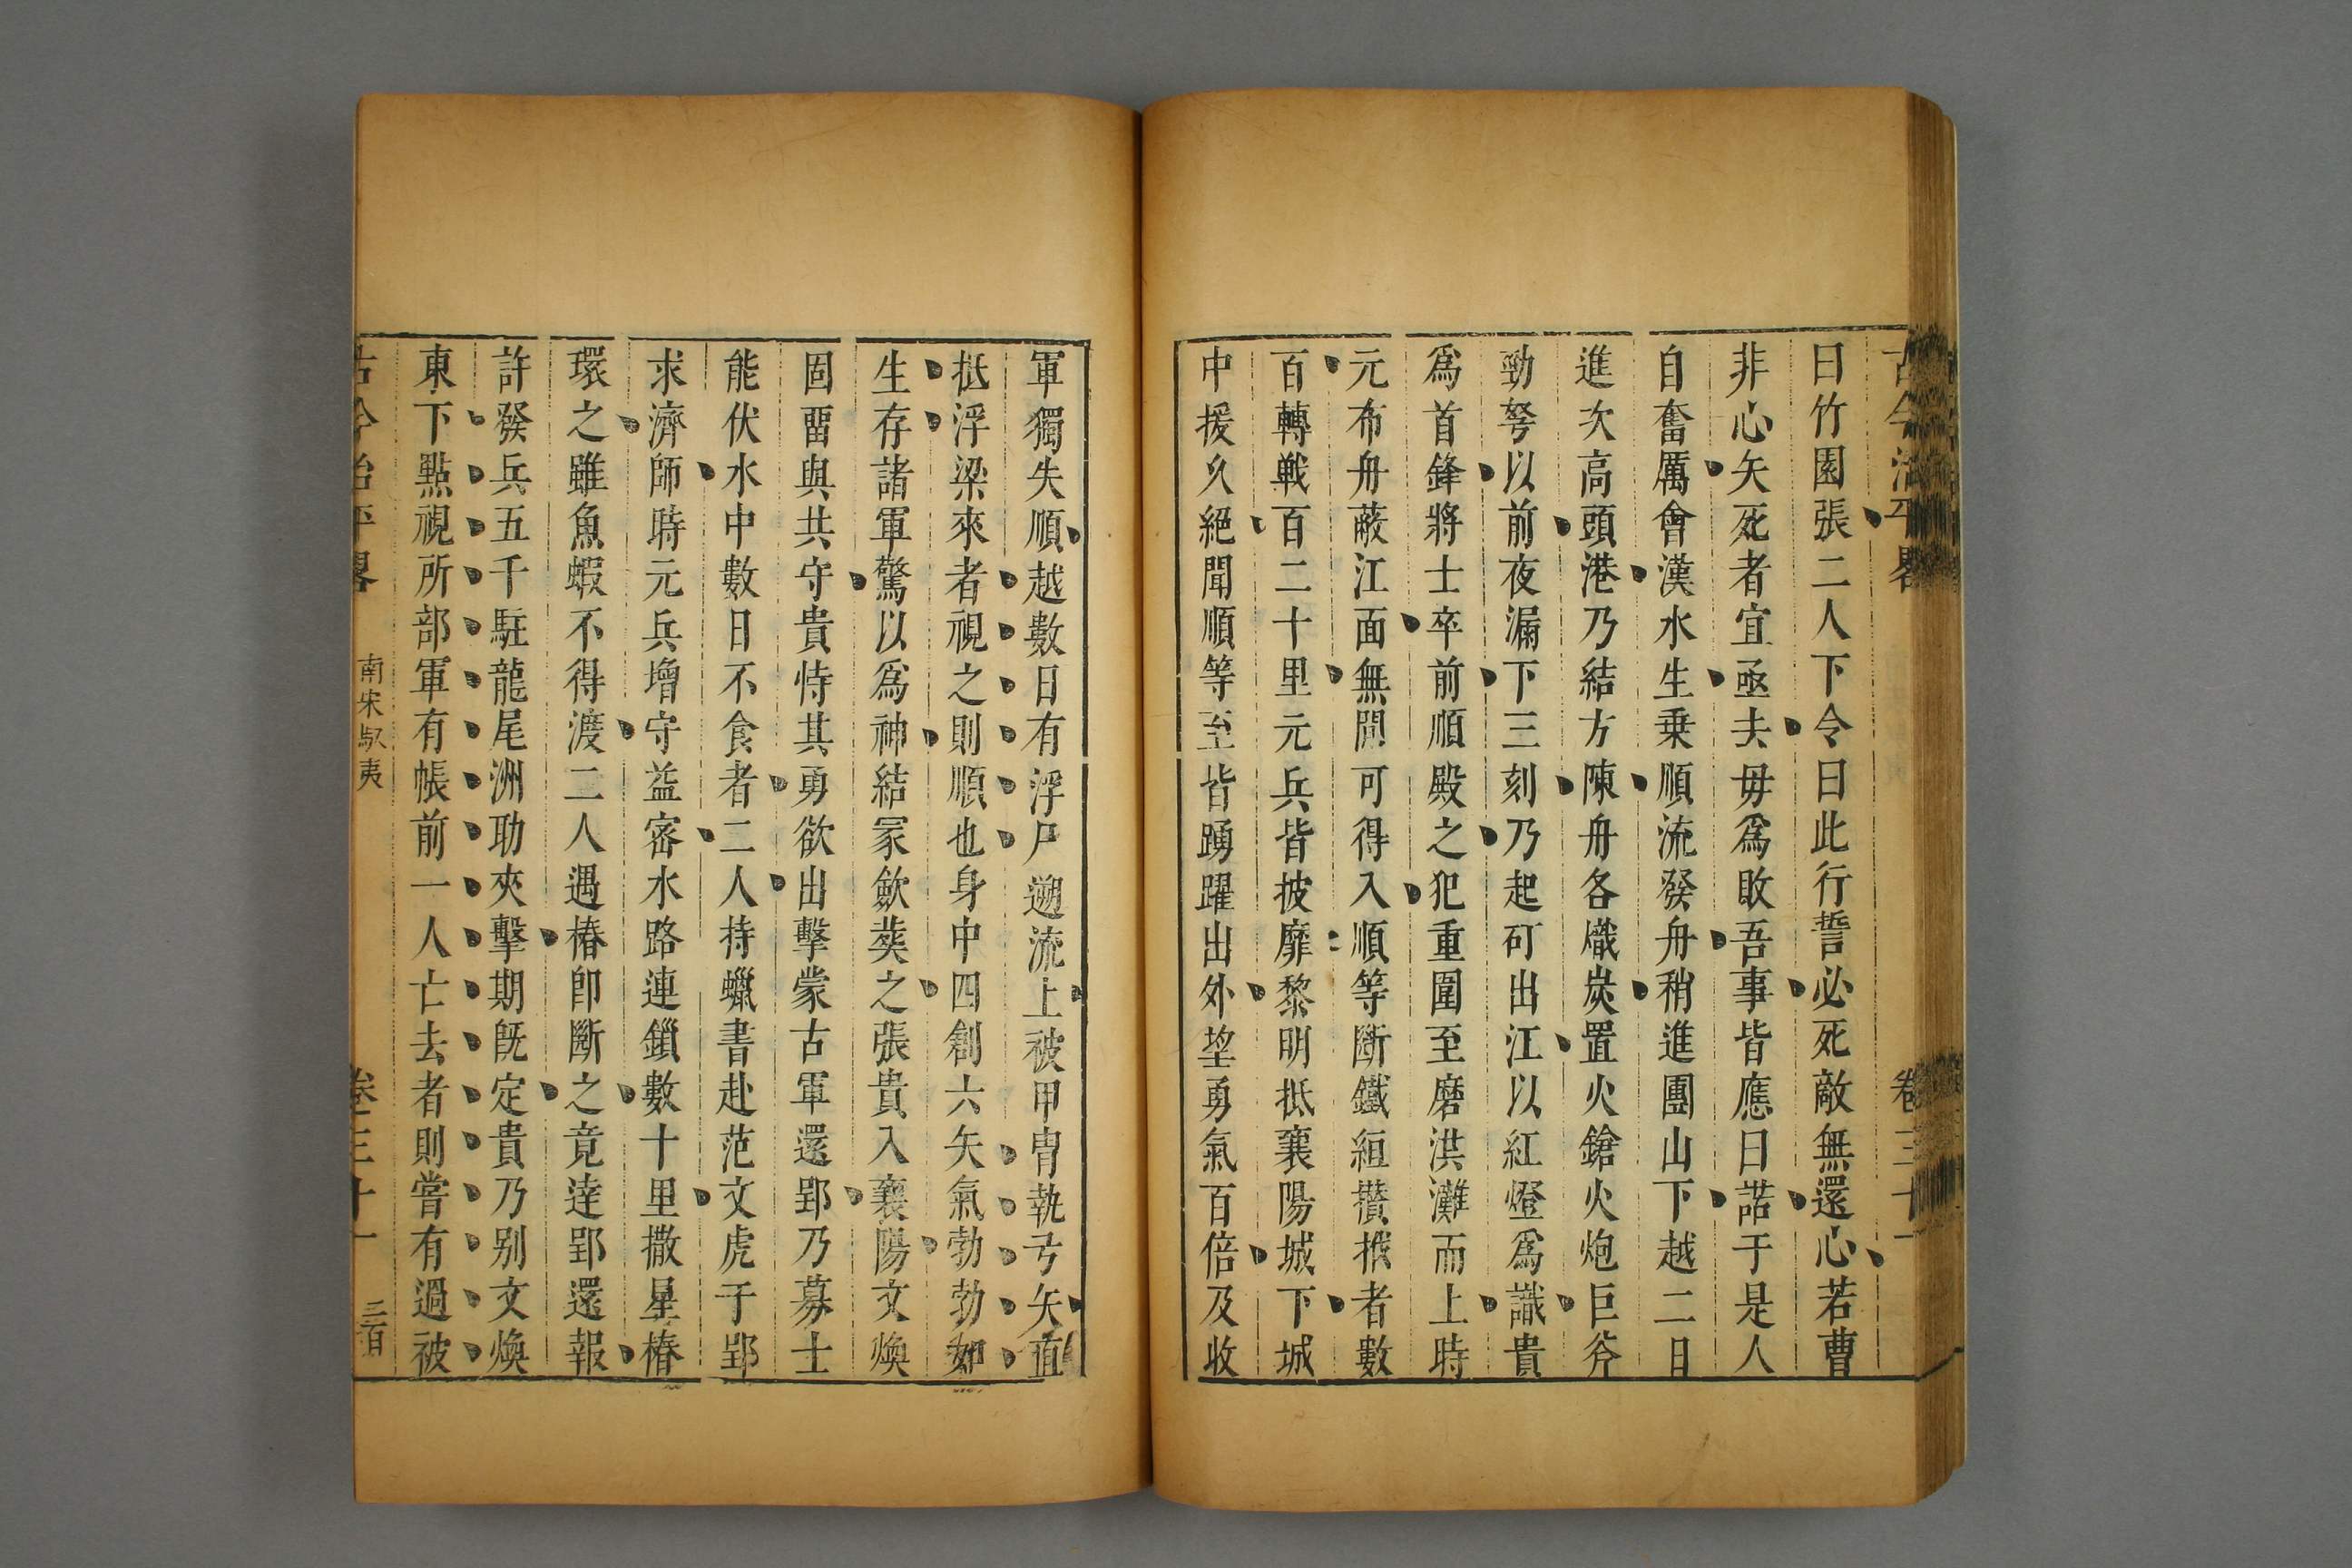 古今治平畧 卷三十一
曰竹園張二人下令曰此行誓必死敵無還心若曹
非心矢死者宜亟去毋爲敗吾事皆應曰諾于是人
自奮厲會漢水生乗順流發舟稍進團山下越二日
進次高頭港乃結方陳舟各熾炭置火鎗火炮巨斧
勁弩以前夜漏下三刻乃起矴出江以紅燈爲識貴
爲首鋒將士卒前順殿之犯重圍至磨洪灘而上時
元布舟蔽江面無間可得入順等斷鐵絙攢撠者數
百轉戰百二十里元兵皆披靡黎明抵襄陽城下城
中援久絕聞順等至皆踴躍出外望勇氣百倍及收
軍獨失順越數日有浮尸遡流上被甲冑執弓矢直
抵浮梁來者視之則順也身中四創六矢氣勃勃如
生存諸軍驚以爲神結冢歛葬之張貴入襄陽文煥
固畱與共守貴恃其勇欲出擊蒙古軍還郢乃募士
能伏水中數日不食者二人持蠟書赴范文虎于郢
求濟師時元兵增守益密水路連鎻數十里撒星樁
環之雖魚蝦不得渡二人遇樁卽斷之竟達郢還報
許發兵五千駐龍尾洲助夾擊期旣定貴乃别文煥
東下點視所部軍有帳前一人亡去者則嘗有過被
古今治平畧 南宋馭夷 卷三十一